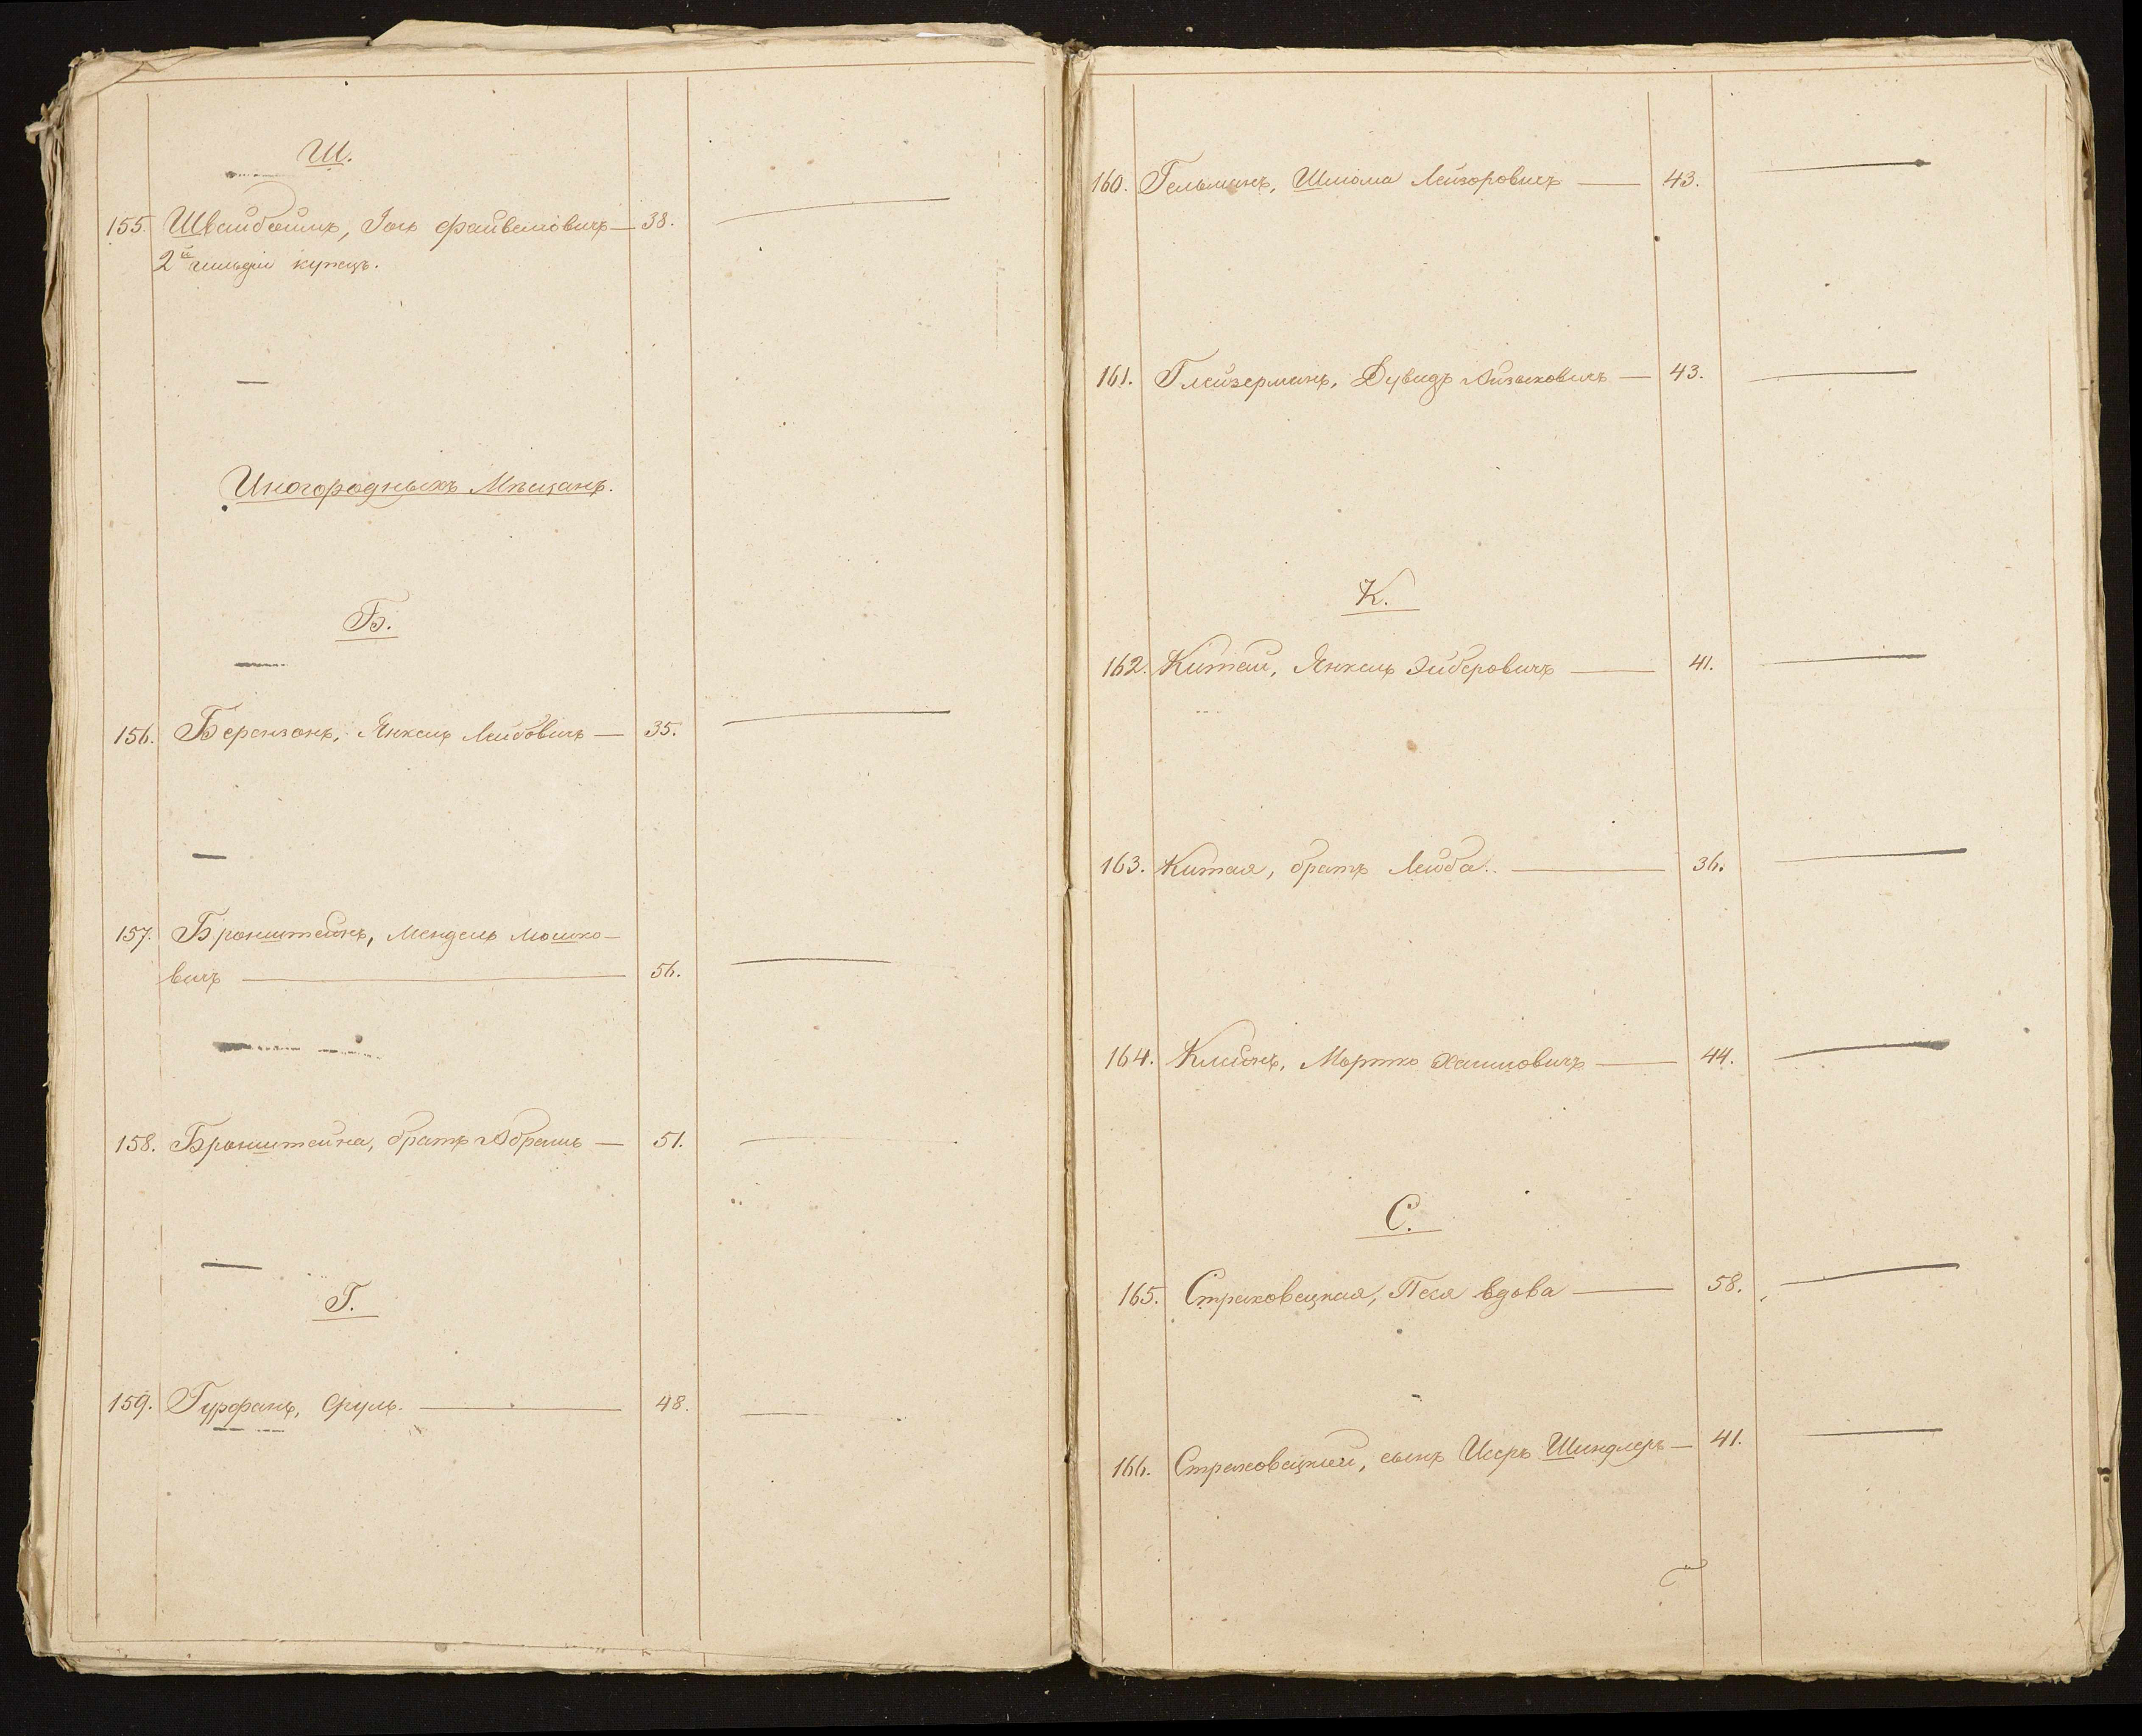 Ш.
155. Швайбоимъ, Іось Файвеловичъ — 38.
2й гильдіи купецъ.
Иногородныхъ Мѣщанъ.
Б.
156. Берензонъ, Янкель Лейбовичъ — 35.
157. Бронштейнъ, Мендель Мошко-
вичъ — 56.
158. Бронштейна, братъ Абрамъ — 51.
Г.
159. Гурфанъ, Сруль. — 48.
160. Гельманъ, Шлома Лейзоровичъ — 43.
161. Глейзерманъ, Дувидъ Айзыковичъ — 43.
К.
162. Китай, Янкель — 41.
163. Китая, братъ Лейба. — 36.
164. Клейнъ, Мортко Хаимовичъ — 44.
С.
165. Страковецкая, Песя вдова — 58.
166. Страковецкій, сынъ Исеръ Шиндлеръ — 41.